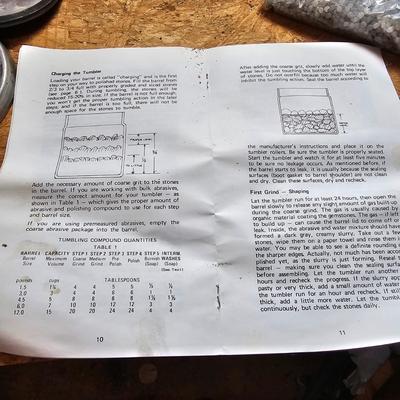 Charging the Tumbler
Loading your barrel is called "charging" and is the first
step on your way to polished stones. Fill the barrel from
2/3 to 3/4 full with properly graded and sized stones
(see page 6). During tumbling, the stones will be
reduced 15-20% in size. If the barrel is not full enough,
you won't get the proper tumbling action in the later
steps; and if the barrel is too full, there will not be
enough space for the stones to tumble.
Add the necessary amount of coarse grit to the stones
in the barrel. If you are working with bulk abrasives,
measure the correct amount for your tumbler — as
shown in Table 1 — which gives the proper amount of
abrasive and polishing compound to use for each step
and barrel size.
If you are using premeasured abrasives, empty the
coarse abrasive package into the barrel.
TUMBLING COMPOUND QUANTITIES
TABLE 1
BARREL CAPACITY STEP 1 STEP 2 STEP 3 STEP 4 STEP 5 INTERM.
Barrel Maximum Coarse Medium Pre Polish Burnish WASHES
Size Volume Grind Grind Polish (Soap) (Soap)
(See Text)
pounds cups TABLESPOONS
1.5 4 4 5 5 ½ ½
2.0 3 4 4 6 6 1 1
4.5 5 8 8 8 8 1½ 1½
6.0 7 10 10 12 12 3 3
12.0 15 20 20 24 24 4 4
10
After adding the coarse grit, slowly add water until the
water level is just touching the bottom of the top layer
of stones. Do not overfill because too much water will
inhibit the tumbling action. Seal the barrel according to
the manufacturer's instructions and place it on the
tumbler rollers. Be sure the tumbler is properly seated.
Start the tumbler and watch it for at least five minutes
to be sure no leakage occurs. As mentioned before, if
the barrel starts to leak, it is usually because the sealing
surfaces (boot gasket to barrel shoulder) are not clean
and dry. Clean these surfaces, dry and recheck.
First Grind — Shaping
Let the tumbler run for at least 24 hours, then open the
barrel slowly to release any slight amount of gas built up
during the coarse grind. The gas is usually caused by
organic material coating the gemstones. The gas — if left
to build up — can cause the barrel lid to come off or
leak. Inside, the abrasive and water mixture should have
formed a dark gray, creamy slurry. Take out a few
stones, wipe them on a paper towel and rinse them in
water. You may be able to see a definite rounding of
the sharper edges. Actually, not much has been accom-
plished yet, as the slurry is just forming. Reseal the
barrel — making sure you clean the sealing surfaces
before assembling. Let the tumbler run another
hours and recheck the progress. If the slurry appears
pasty or very thick, add a small amount of water. Let
the tumbler run for an hour and recheck. If still
thick, add a little more water. Let the tumbler
continuously, but check the stones daily.
11